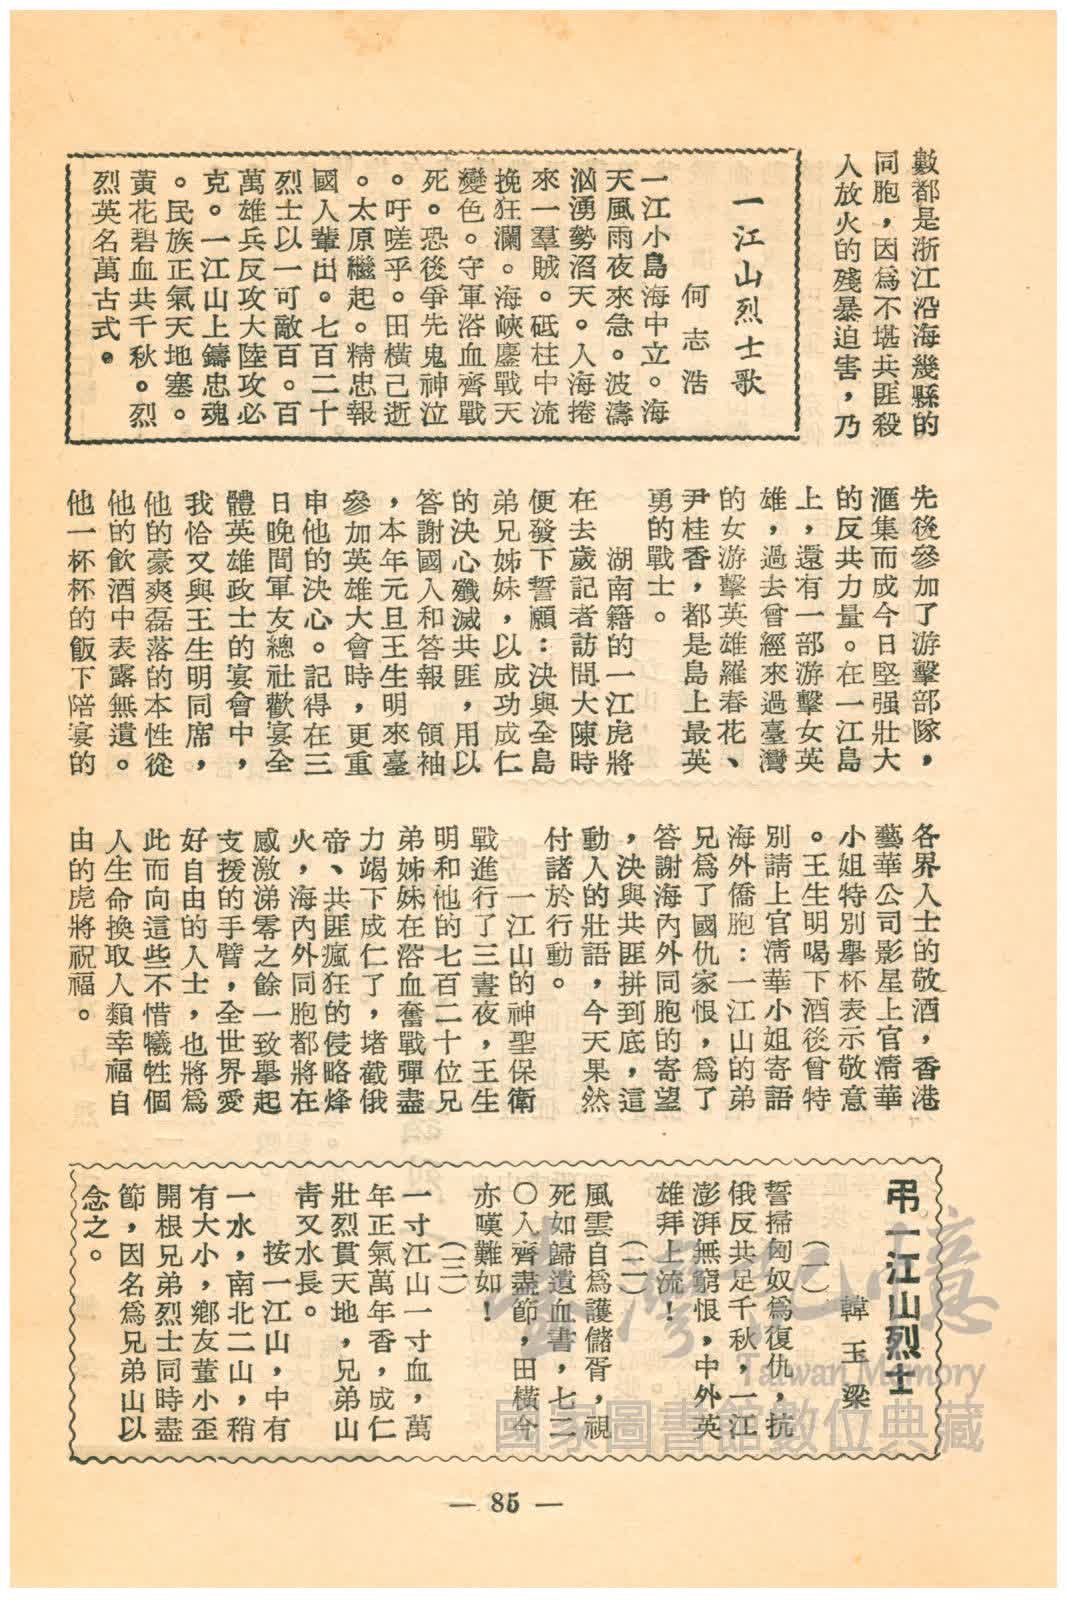 數都是浙江沿海幾縣的
同胞，因爲不堪共匪殺
人放火的殘暴迫害，乃
一江山烈士歌
何志浩
一江小島海中立。海
天風雨夜來急。波濤
洶湧勢滔天。人海捲
來一羣賊。砥柱中流
挽狂瀾。海峽鏖戰天
變色。守軍浴血齊戰
死。恐後爭先鬼神泣
。吁嗟乎。田橫已逝
。太原繼起。精忠報
國人輩出。七百二十
烈士以一可敵百。百
萬雄兵反攻大陸攻必
克。一江山上鑄忠魂
。民族正氣天地塞。
黃花碧血共千秋。烈
烈英名萬古式。
先後參加了游擊部隊，
滙集而成今日堅强壯大
的反共力量。在一江島
上，還有一部游擊女英
雄，過去曾經來過臺灣
的女游擊英雄羅春花、
尹桂香，都是島上最英
勇的戰士。
湖南籍的一江虎將
在去歲記者訪問大陳時
便發下誓願：決與全島
弟兄姊妹，以成功成仁
的決心殲滅共匪，用以
答謝國人和答報　領袖
，本年元旦王生明來臺
參加英雄大會時，更重
申他的決心。記得在三
日晚間軍友總社歡宴全
體英雄政士的宴會中，
我恰又與王生明同席，
他的豪爽磊落的本性從
他的飲酒中表露無遺。
他一杯杯的飯下陪宴的
各界人士的敬酒，香港
藝華公司影星上官清華
小姐特別擧杯表示敬意
。王生明喝下酒後曾特
別請上官淸華小姐寄語
海外僑胞：一江山的弟
兄爲了國仇家恨，爲了
答謝海內外同胞的寄望
，決與共匪拼到底，這
動人的壯語，今天果然
付諸於行動。
一江山的神聖保衛
戰進行了三晝夜，王生
明和他的七百二十位兄
弟姊妹在浴血奮戰彈盡
力竭下成仁了，堵截俄
帝、共匪瘋狂的侵略烽
火，海內外同胞都將在
感激涕零之餘一致擧起
支援的手臂，全世界愛
好自由的人士，也將爲
此而向這些不惜犧牲個
人生命換取人類幸福自
由的虎將祝福。
弔一江山烈士
韓玉梁
（一）
誓掃匈奴爲復仇，抗
俄反共足千秋，一江
澎湃無窮恨，中外英
雄拜上流！
（二）
風雲自爲護儲胥，視
死如歸遺血書，七二
○人齊盡節，田橫今
亦嘆難如！
（三）
一寸江山一寸血，萬
年正氣萬年香，成仁
壯烈貫天地，兄弟山
靑又水長。
按一江山，中有
一水，南北二山，稍
有大小，鄉友董小歪
開根兄弟烈士同時盡
節，因名爲兄弟山以
念之。
— 85 —
臺灣記憶
Taiwan Memory
國家圖書館數位典藏